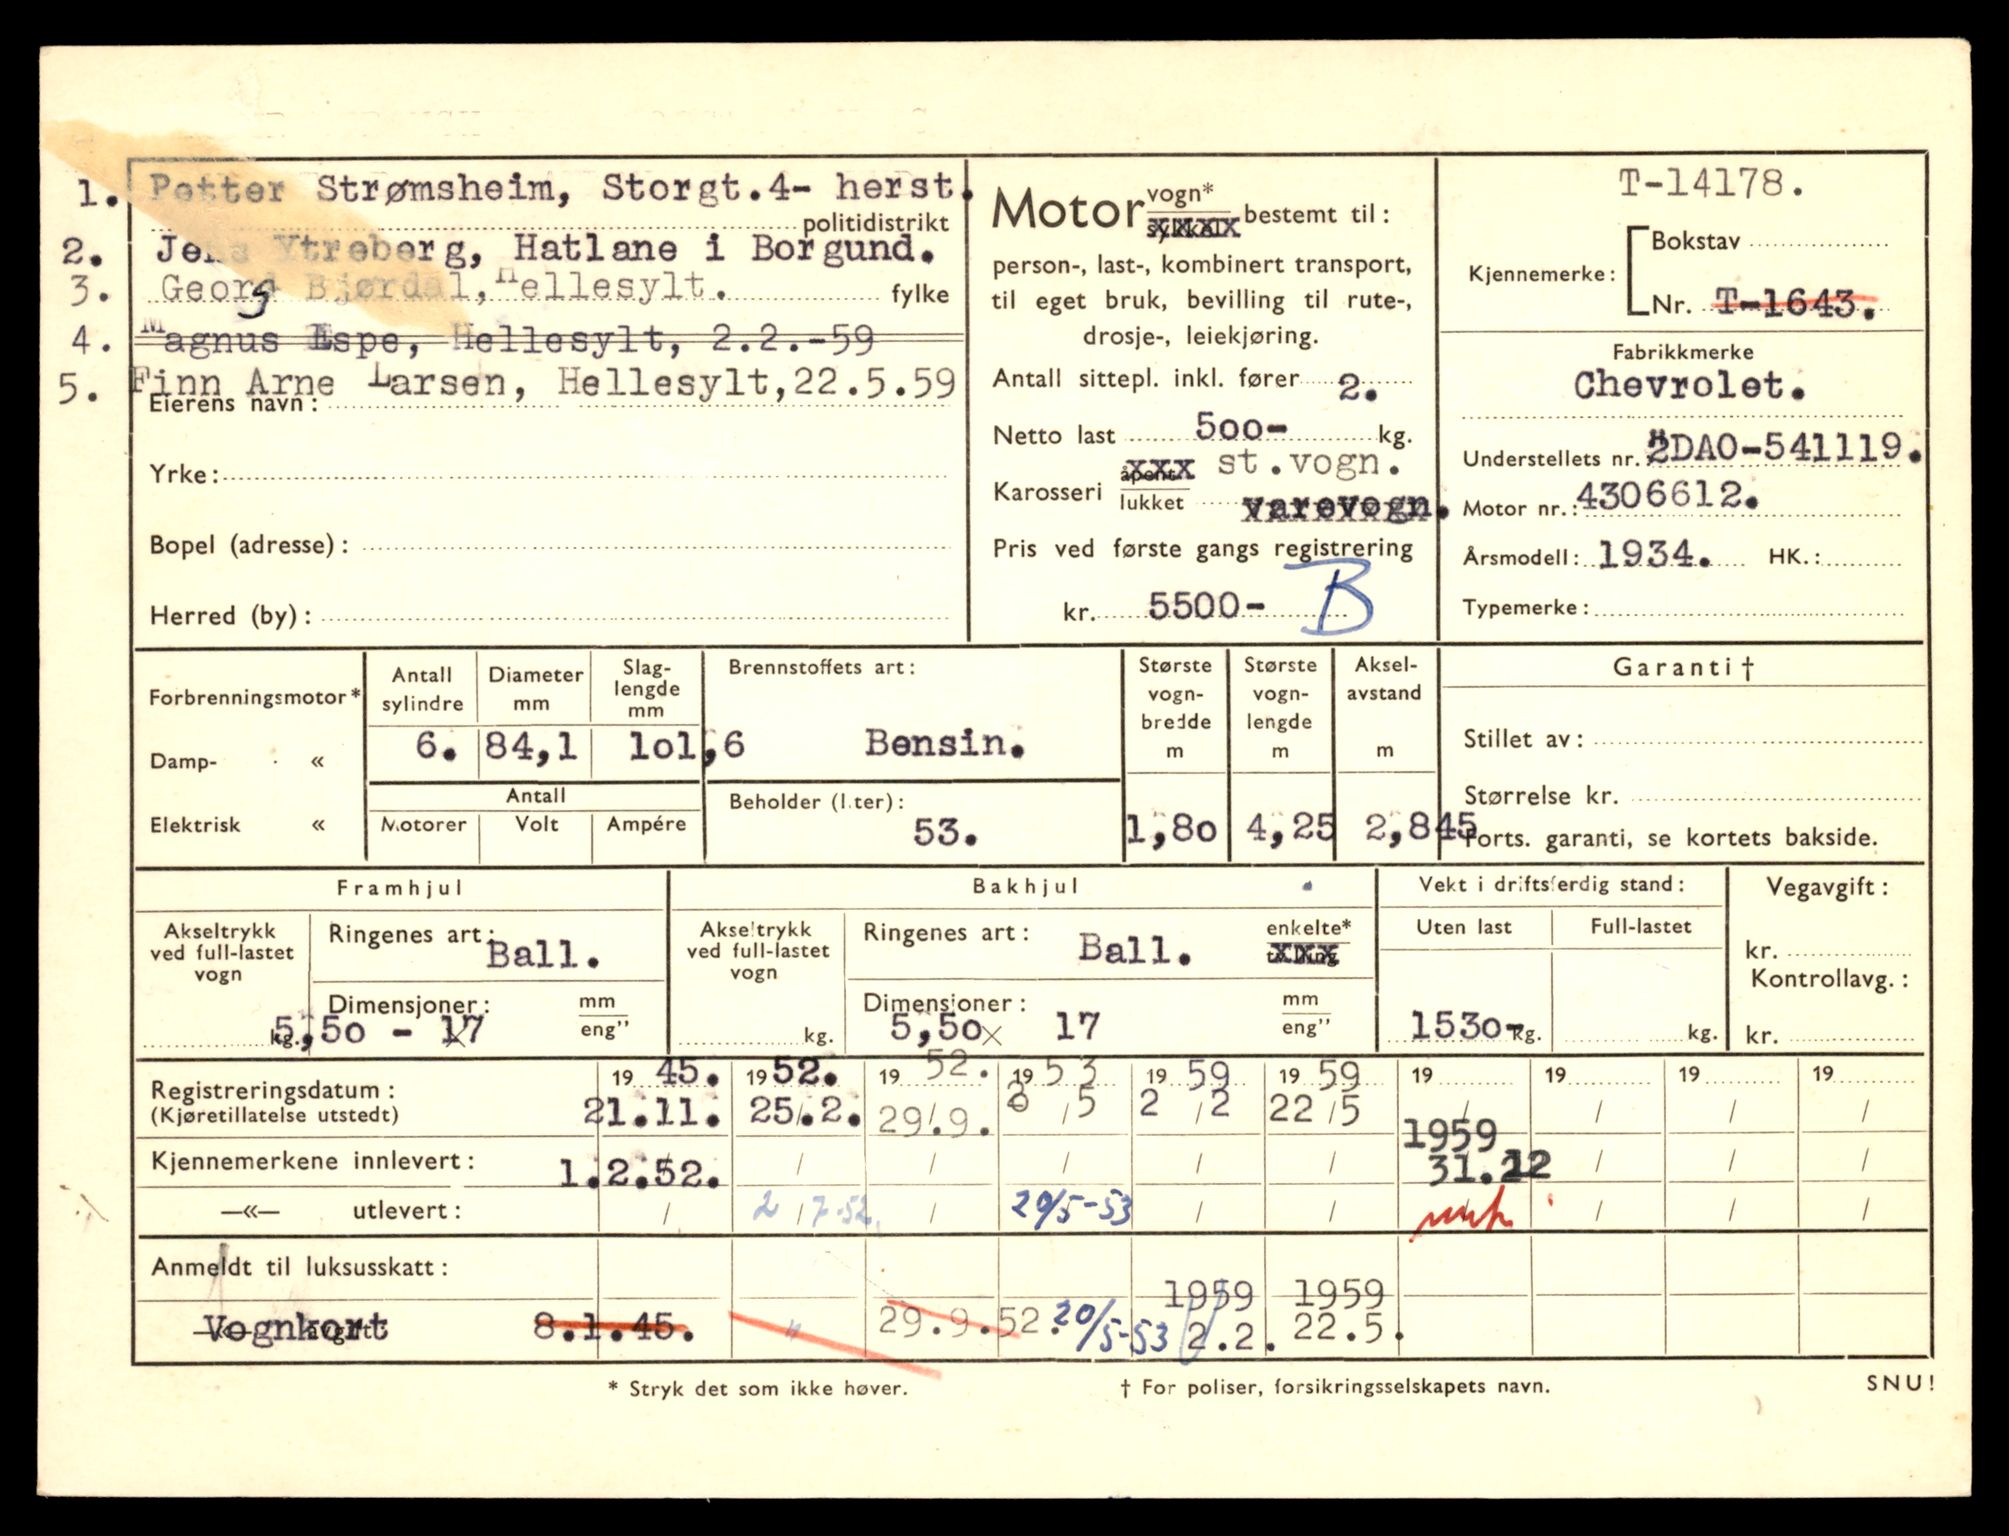 1. Petter Strømsheim, Storgt.4- herst.
politidistrikt
2. Jens Ytreberg, Hatlane i Borgund.
3. Georg Bjørdal, Hellesylt.
fylke
4. Magnus Espe, Hellesylt, 2.2.-59
5. Finn Arne Larsen, Hellesylt, 22.5.59
Eierens navn:
Yrke:
Bopel (adresse):
Herred (by):
Motor vogn* bestemt til:
person-, last-, kombinert transport,
til eget bruk, bevilling til rute-,
drosje-, leiekjøring.
Antall sittepl. inkl. fører 2.
Netto last 500- kg.
Karosseri åpent xxx st.vogn.
lukket varevogn.
Pris ved første gangs registrering
kr. 5500- B
T-14178.
Kjennemerke: Bokstav
Nr. T-1643.
Fabrikkmerke
Chevrolet.
Understellets nr. 2DAO-541119.
Motor nr.: 4306612.
Årsmodell: 1934. HK.:
Typemerke:
Forbrenningsmotor*
Damp- «
Elektrisk «
Antall sylindre
6.
Diameter mm
84,1
Slag-lengde mm
101,6
Antall
Motorer Volt Ampére
Brennstoffets art:
Bensin.
Beholder (liter):
53.
Største vogn-bredde m
1,80
Største vogn-lengde m
4,25
Aksel-avstand m
2,845
Garanti †
Stillet av:
Størrelse kr.
Forts. garanti, se kortets bakside.
Framhjul
Akseltrykk ved full-lastet vogn
kg.
Ringenes art: Ball.
Dimensjoner: mm
eng"
5,50 - 17
Bakhjul
Akseltrykk ved full-lastet vogn
kg.
Ringenes art: Ball. enkelte*
xxx
Dimensjoner: mm
eng"
5,50 x 17
Vekt i driftsferdig stand:
Uten last Full-lastet
1530- kg. kg.
Vegavgift:
kr.
Kontrollavg.:
kr.
Registreringsdatum: 19 45. 19 52. 19 52. 19 53 19 59 19 59 19 19 19 19
(Kjøretillatelse utstedt) 21.11. 25.2. 29.9. / 5 2 / 2 22 / 5 / / / /
1959
Kjennemerkene innlevert: 1.2.52. / / / / / 31.12 / / /
—«— utlevert: / 2/7-52. / 20/5-53 / / / / /
Anmeldt til luksusskatt:
1959 1959
Vognkort 8.1.45. " 29.9.52. 20/5-53 2.2. 22.5.
* Stryk det som ikke høver.
† For poliser, forsikringsselskapets navn.
SNU!